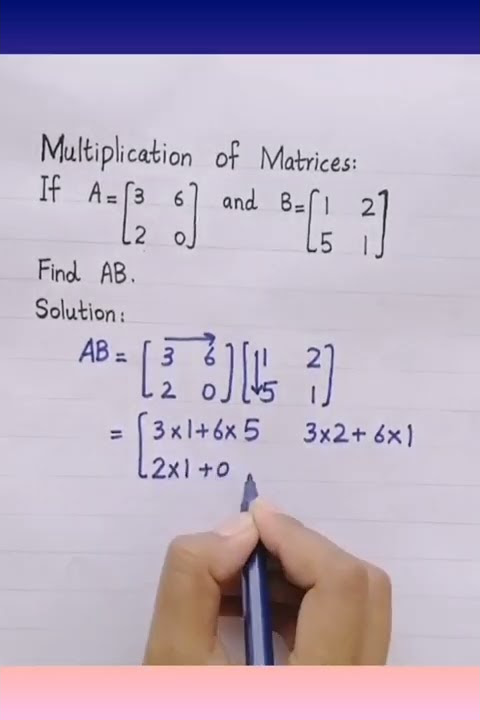 Multiplication of Matrices:
If A = [3 6 and B = [1 2
2 0] 5 1]
Find AB.
Solution:
AB = [3 6 [1 2
2 0] 5 1]
= [3×1+6×5 3×2+6×1
2×1+0